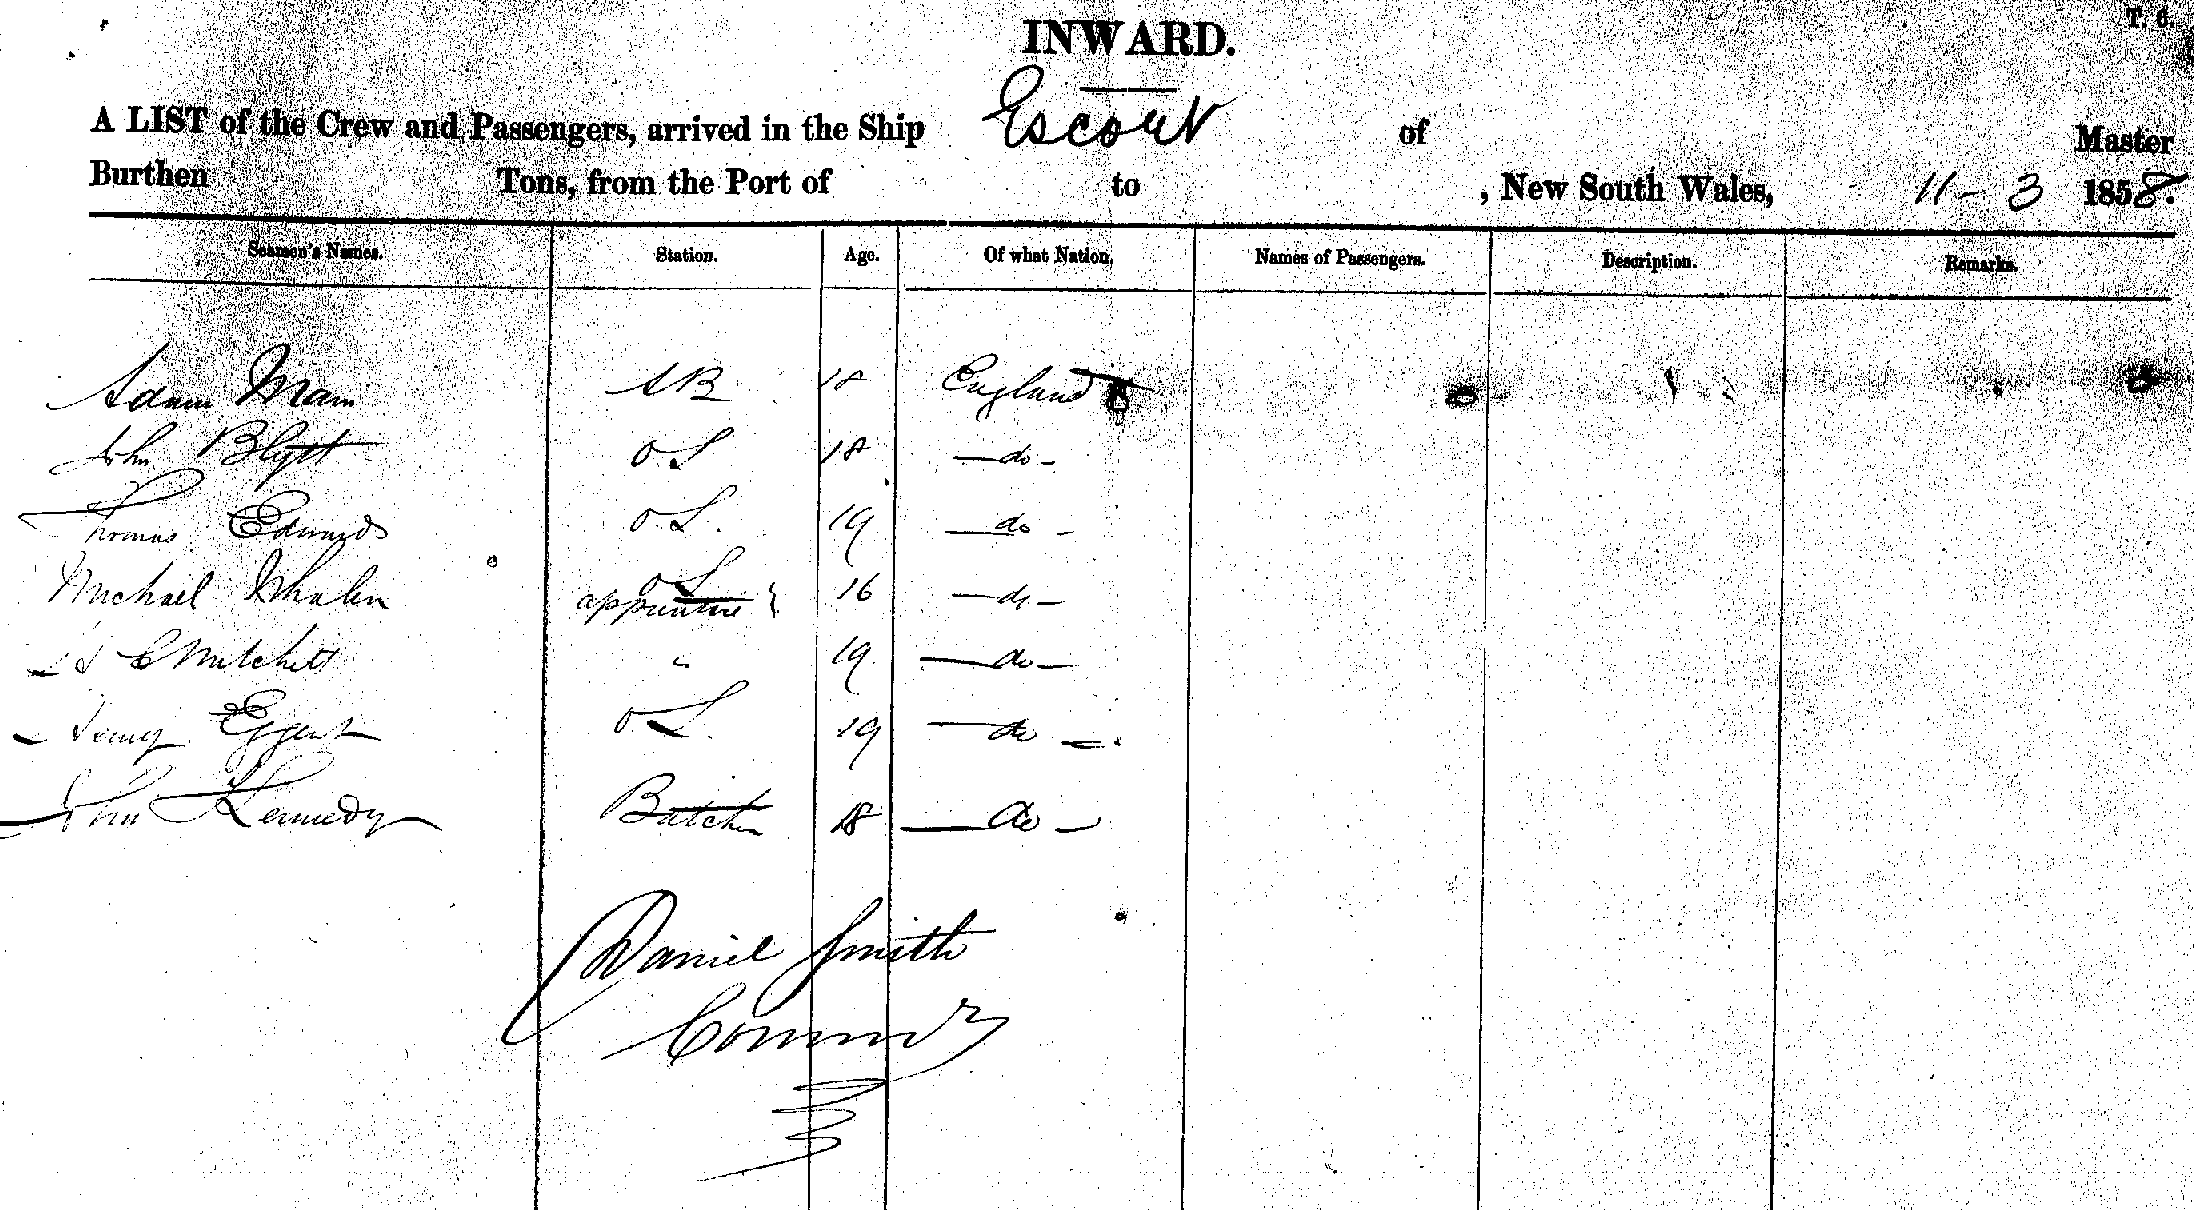 T. 6.
INWARD.
A LIST of the Crew and Passengers, arrived in the Ship Escort of Master
Burthen Tons, from the Port of to , New South Wales, 11-3 1858.
Seamen's Names. Station. Age. Of what Nation. Names of Passengers. Description. Remarks.
Adam Mam AB 18 England
John Blytt OS 18 -do-
Thomas Edwards OS. 19 -do-
Michael Whalen OS apprentice } 16 -do-
C Mitchell " 19 -do-
OS. 19 -do-
John Kennedy Butcher 18 -Do-
Daniel Smith
Commr